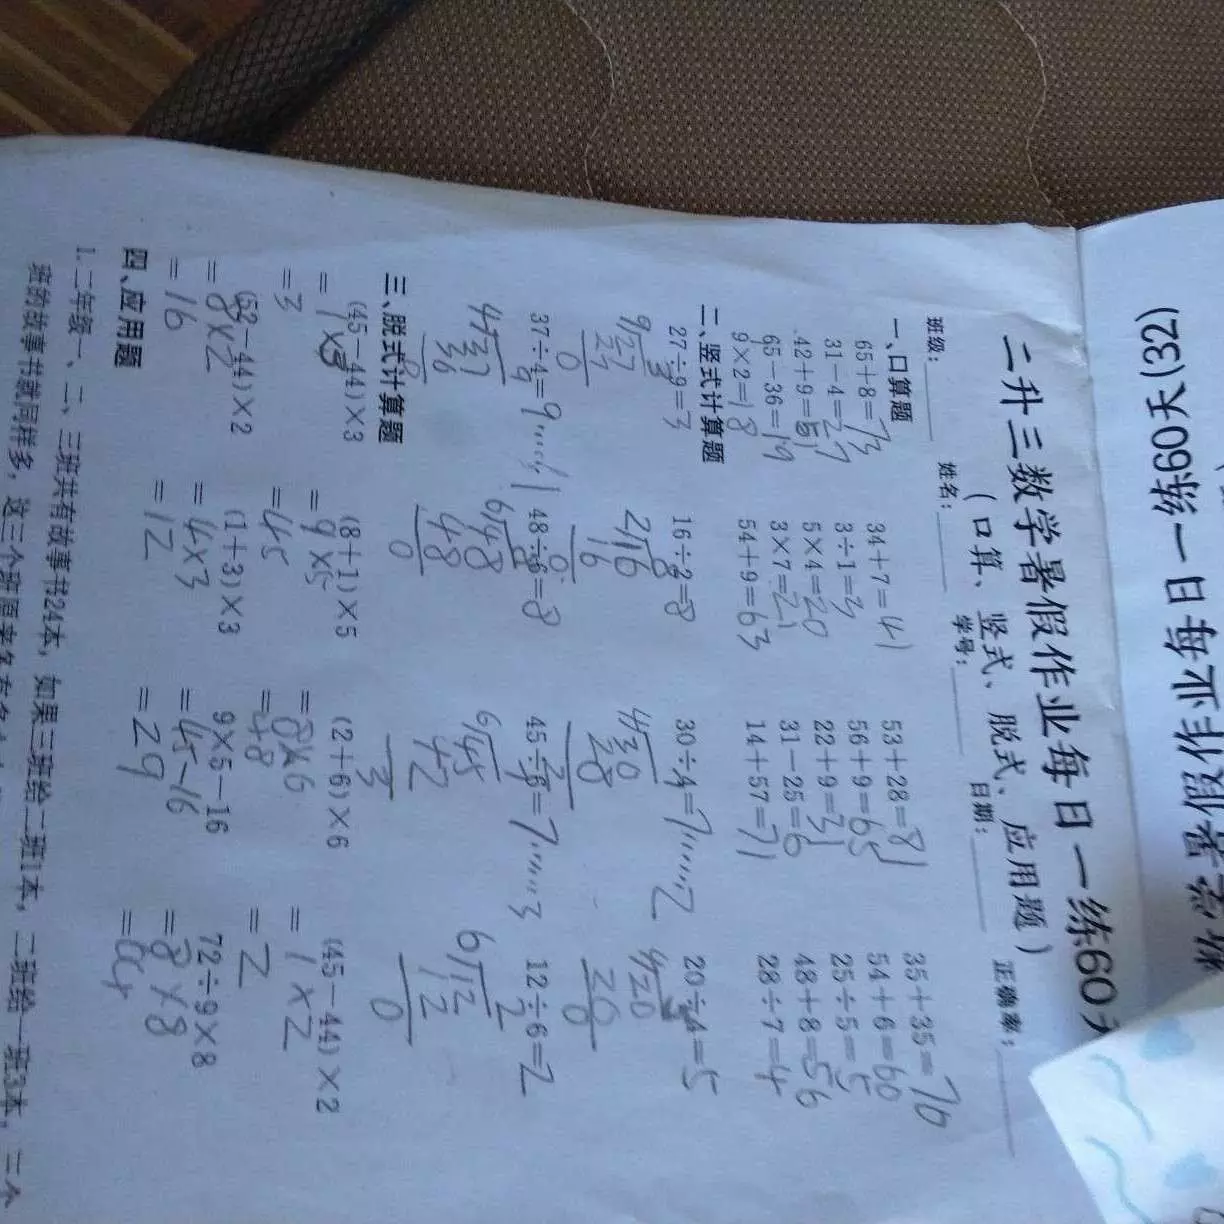 数学暑假作业每日一练60天(32)
二升三数学暑假作业每日一练60天
(口算、竖式、脱式、应用题)
班级: 姓名: 学号: 日期: 正确率:
一、口算题
65+8=73 34+7=41 53+28=81 35+35=70
31-4=27 3÷1=3 56+9=65 54+6=60
42+9=51 5×4=20 22+9=31 25÷5=5
65-36=19 3×7=21 31-25=6 48+8=56
9×2=18 54+9=63 14+57=71 28÷7=4
二、竖式计算题
27÷9=3 16÷2=8 30÷4=7……2 20÷4=5
3 8 7
9 27 2 16 4 30 4 20
27 16 28 20
0 0 2 0
37÷4=9……1 48÷6=8 45÷6=7……3 12÷6=2
9 8 7 2
4 37 6 48 6 45 6 12
36 48 42 12
0 3 0
三、脱式计算题
(45-44)×3 (8+1)×5 (2+6)×6 (45-44)×2
=1×3 =9×5 =8×6 =1×2
=3 =45 =48 =2
(52-44)×2 (1+3)×3 9×5-16 72÷9×8
=8×2 =4×3 =45-16 =8×8
=16 =12 =29 =64
四、应用题
1.二年级一、二、三班共有故事书24本,如果三班给二班1本,二班给一班3本,三个
班的故事书就同样多,这三个班原来各有